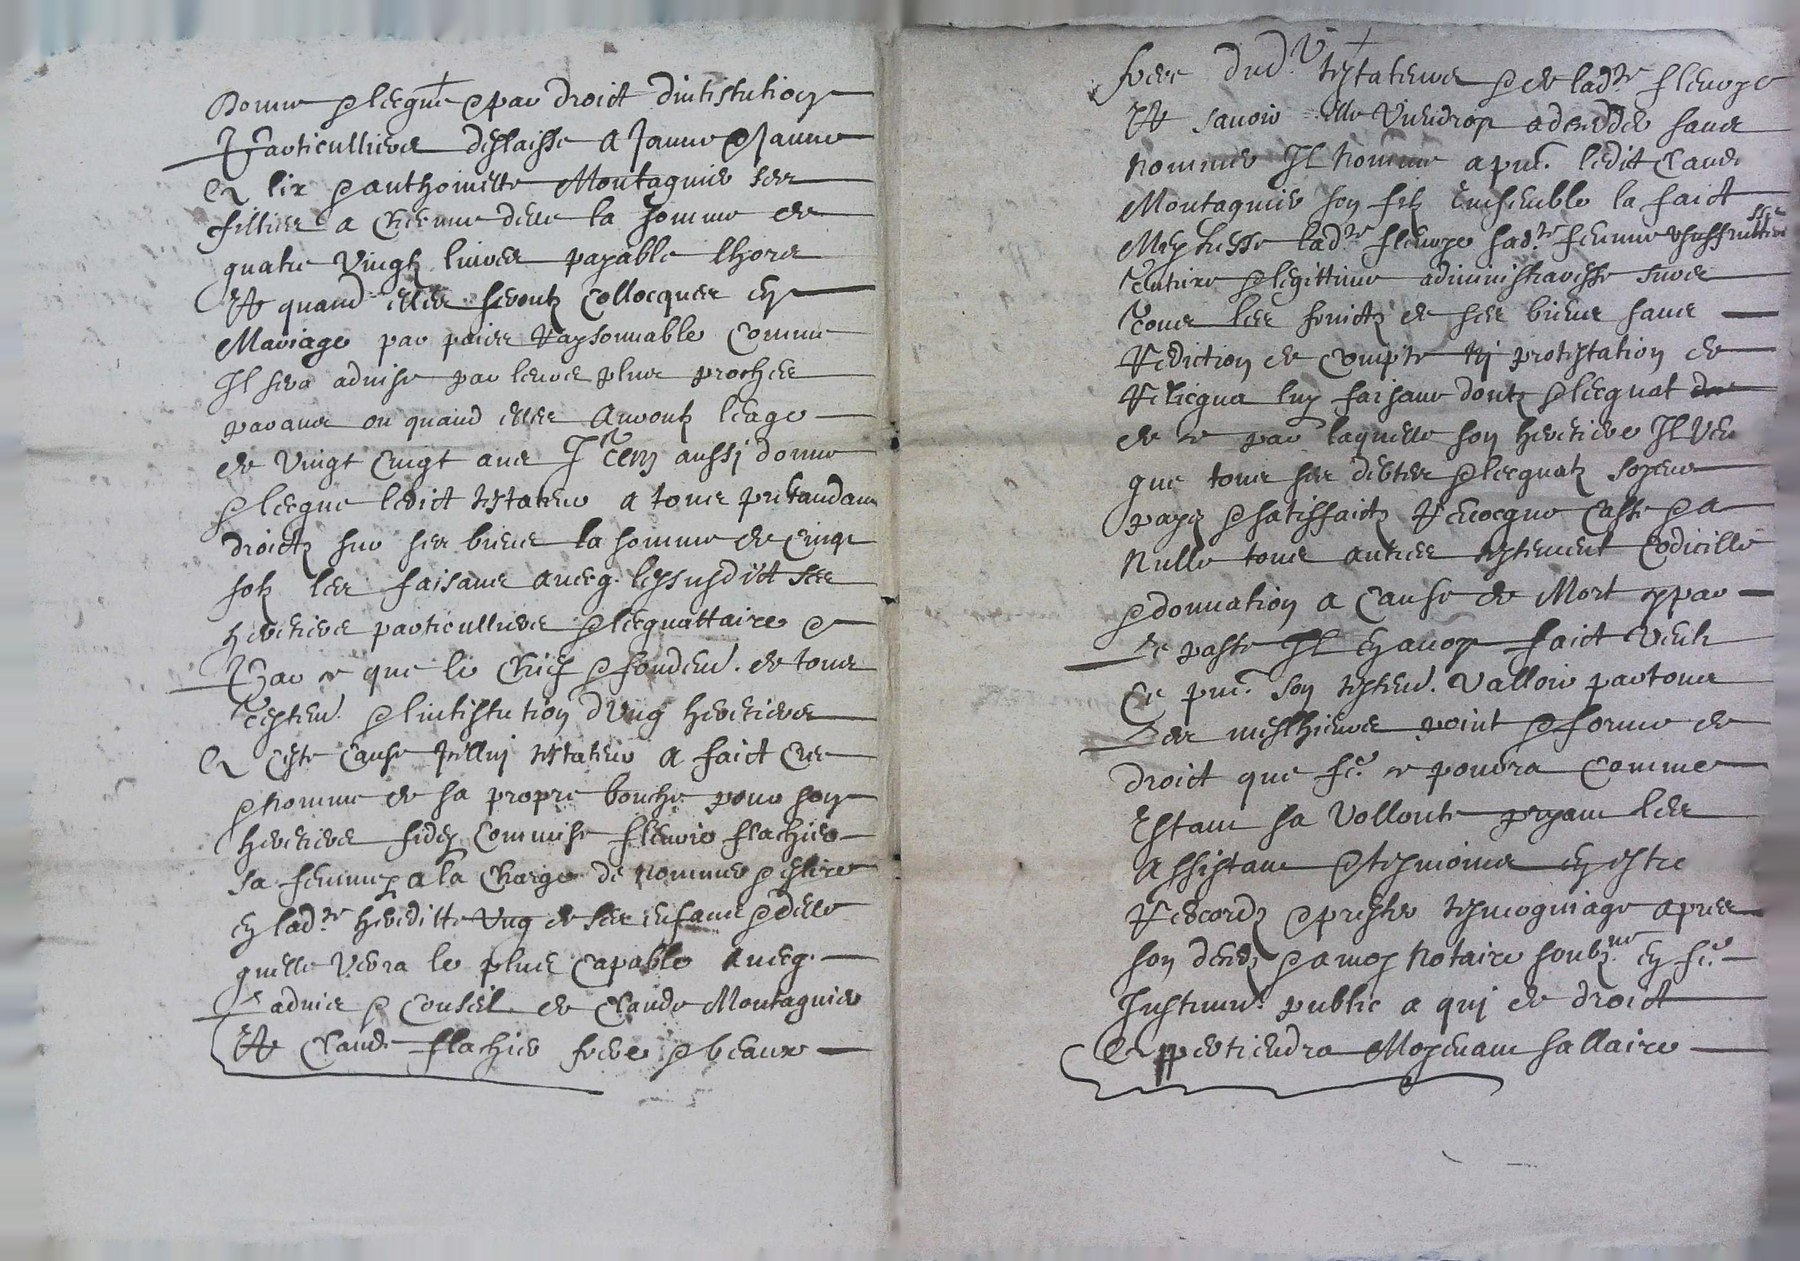 Donne & legue & par droict dintistution
Particulliere deslaisse a Janne & Janne
& lix & anthoinette Montagnier ses
filliers a chacune delle la somme de
quatre vingtz livres payable lhors
Et quand elles seront collocquer en
Mariage par partie Raysonnable comme
Il sera advise par leurs plus proches
parans ou quand elles auront leage
de vingt cinqt ans Item aussi donne
& legue ledict testateur a tous pretandans
droictz sur ses biens la somme de cinqt
solz les faisans aveq. lessusdict ses
heretiers particulliers & legattaire &
Par ce que le chief & fondem. de tout
testem. & lintistution dung heretiers
& ceste cause Icelluy testateur a faict cree
& nomme de sa propre bouche pour son
heretiere fidey commise fleurie flachier
sa femme a la charge de nommer & eslire
en lad.te heredite ung de ses enfans & delle
quelle verra le plus capable aveq.
Ladvis & conseil de Claude Montagnier
Et Claude flachier frere & beaux
frere dud.t testateurs & de lad.te fleurye
Et savoir elle viendroy a deceder sans
nommer Il nomme a pnt. ledit Claude
Montagnier son filz Ensemble la faict
Maystresse lad.te fleurye sad.te femme usuffruittiere
tutrixe & legittime administraresse sur
tous les fruictz de ses biens sans
Rediction de compte ny protestation de
Relicqua luy faisans dont & legat
de ce par laquelle son heretiere Il veu
que tous ses debtes & legatz soyent
payez & satisffaictz Revocque casse &
nulle tous autres testement codicille
& donnation a cause de Mort sy par
Ce passe Il en avoy faict veult
Ce pnt. son testem. valloir par tous
Les meslhieurs point & forme de
droict que fe. ce pourra Comme
Estant sa vollonte pryant les
Assistans & tesmoins en estre
Recordz & prester tesmognage apres
son deces & a moy notaire soubz.ne en fe.
Instrum. public a qui de droict
Il appertiendra Moyenant sallaire